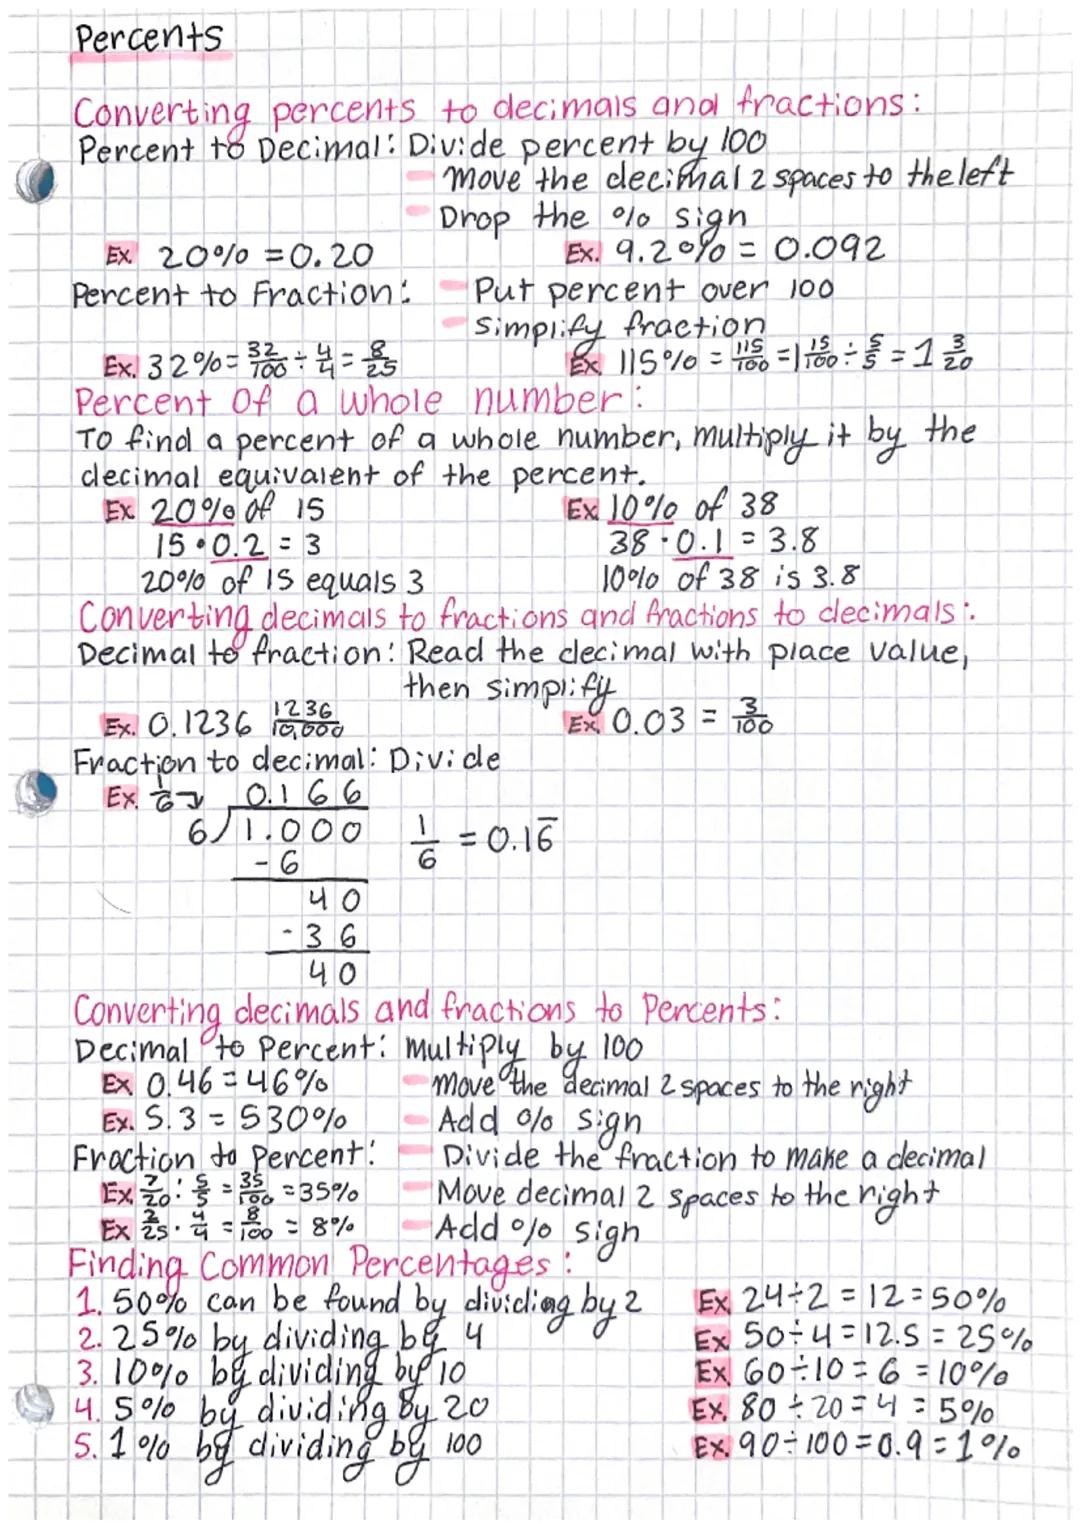 Percents
Converting percents to decimals and fractions:
Percent to Decimal: Divide percent by 100
- Move the decimal 2 spaces to the left
- Drop the % sign
Ex 20% = 0.20 Ex. 9.2% = 0.092
Percent to Fraction: - Put percent over 100
- Simplify fraction
Ex. 32% = 32/100 ÷ 4/4 = 8/25 Ex 115% = 115/100 = 1 15/100 ÷ 5/5 = 1 3/20
Percent of a whole number:
To find a percent of a whole number, multiply it by the
decimal equivalent of the percent.
Ex 20% of 15 Ex 10% of 38
15 • 0.2 = 3 38 · 0.1 = 3.8
20% of 15 equals 3 10% of 38 is 3.8
Converting decimals to fractions and fractions to decimals:
Decimal to fraction: Read the decimal with place value,
then simplify
Ex. 0.1236 1236/10,000 Ex. 0.03 = 3/100
Fraction to decimal: Divide
Ex. 1/6 0.166
6 1.000 1/6 = 0.16̅
- 6
40
- 36
40
Converting decimals and fractions to Percents:
Decimal to Percent: Multiply by 100
Ex 0.46 = 46% - Move the decimal 2 spaces to the right
Ex. 5.3 = 530% - Add % sign
Fraction to Percent: - Divide the fraction to make a decimal
Ex. 7/20 : 5/5 = 35/100 = 35% - Move decimal 2 spaces to the right
Ex 2/25 · 4/4 = 8/100 = 8% - Add % sign
Finding Common Percentages:
1. 50% can be found by dividing by 2 Ex 24÷2 = 12 = 50%
2. 25% by dividing by 4 Ex 50÷4 = 12.5 = 25%
3. 10% by dividing by 10 Ex. 60÷10 = 6 = 10%
4. 5% by dividing by 20 Ex. 80÷20 = 4 = 5%
5. 1% by dividing by 100 Ex. 90÷100 = 0.9 = 1%